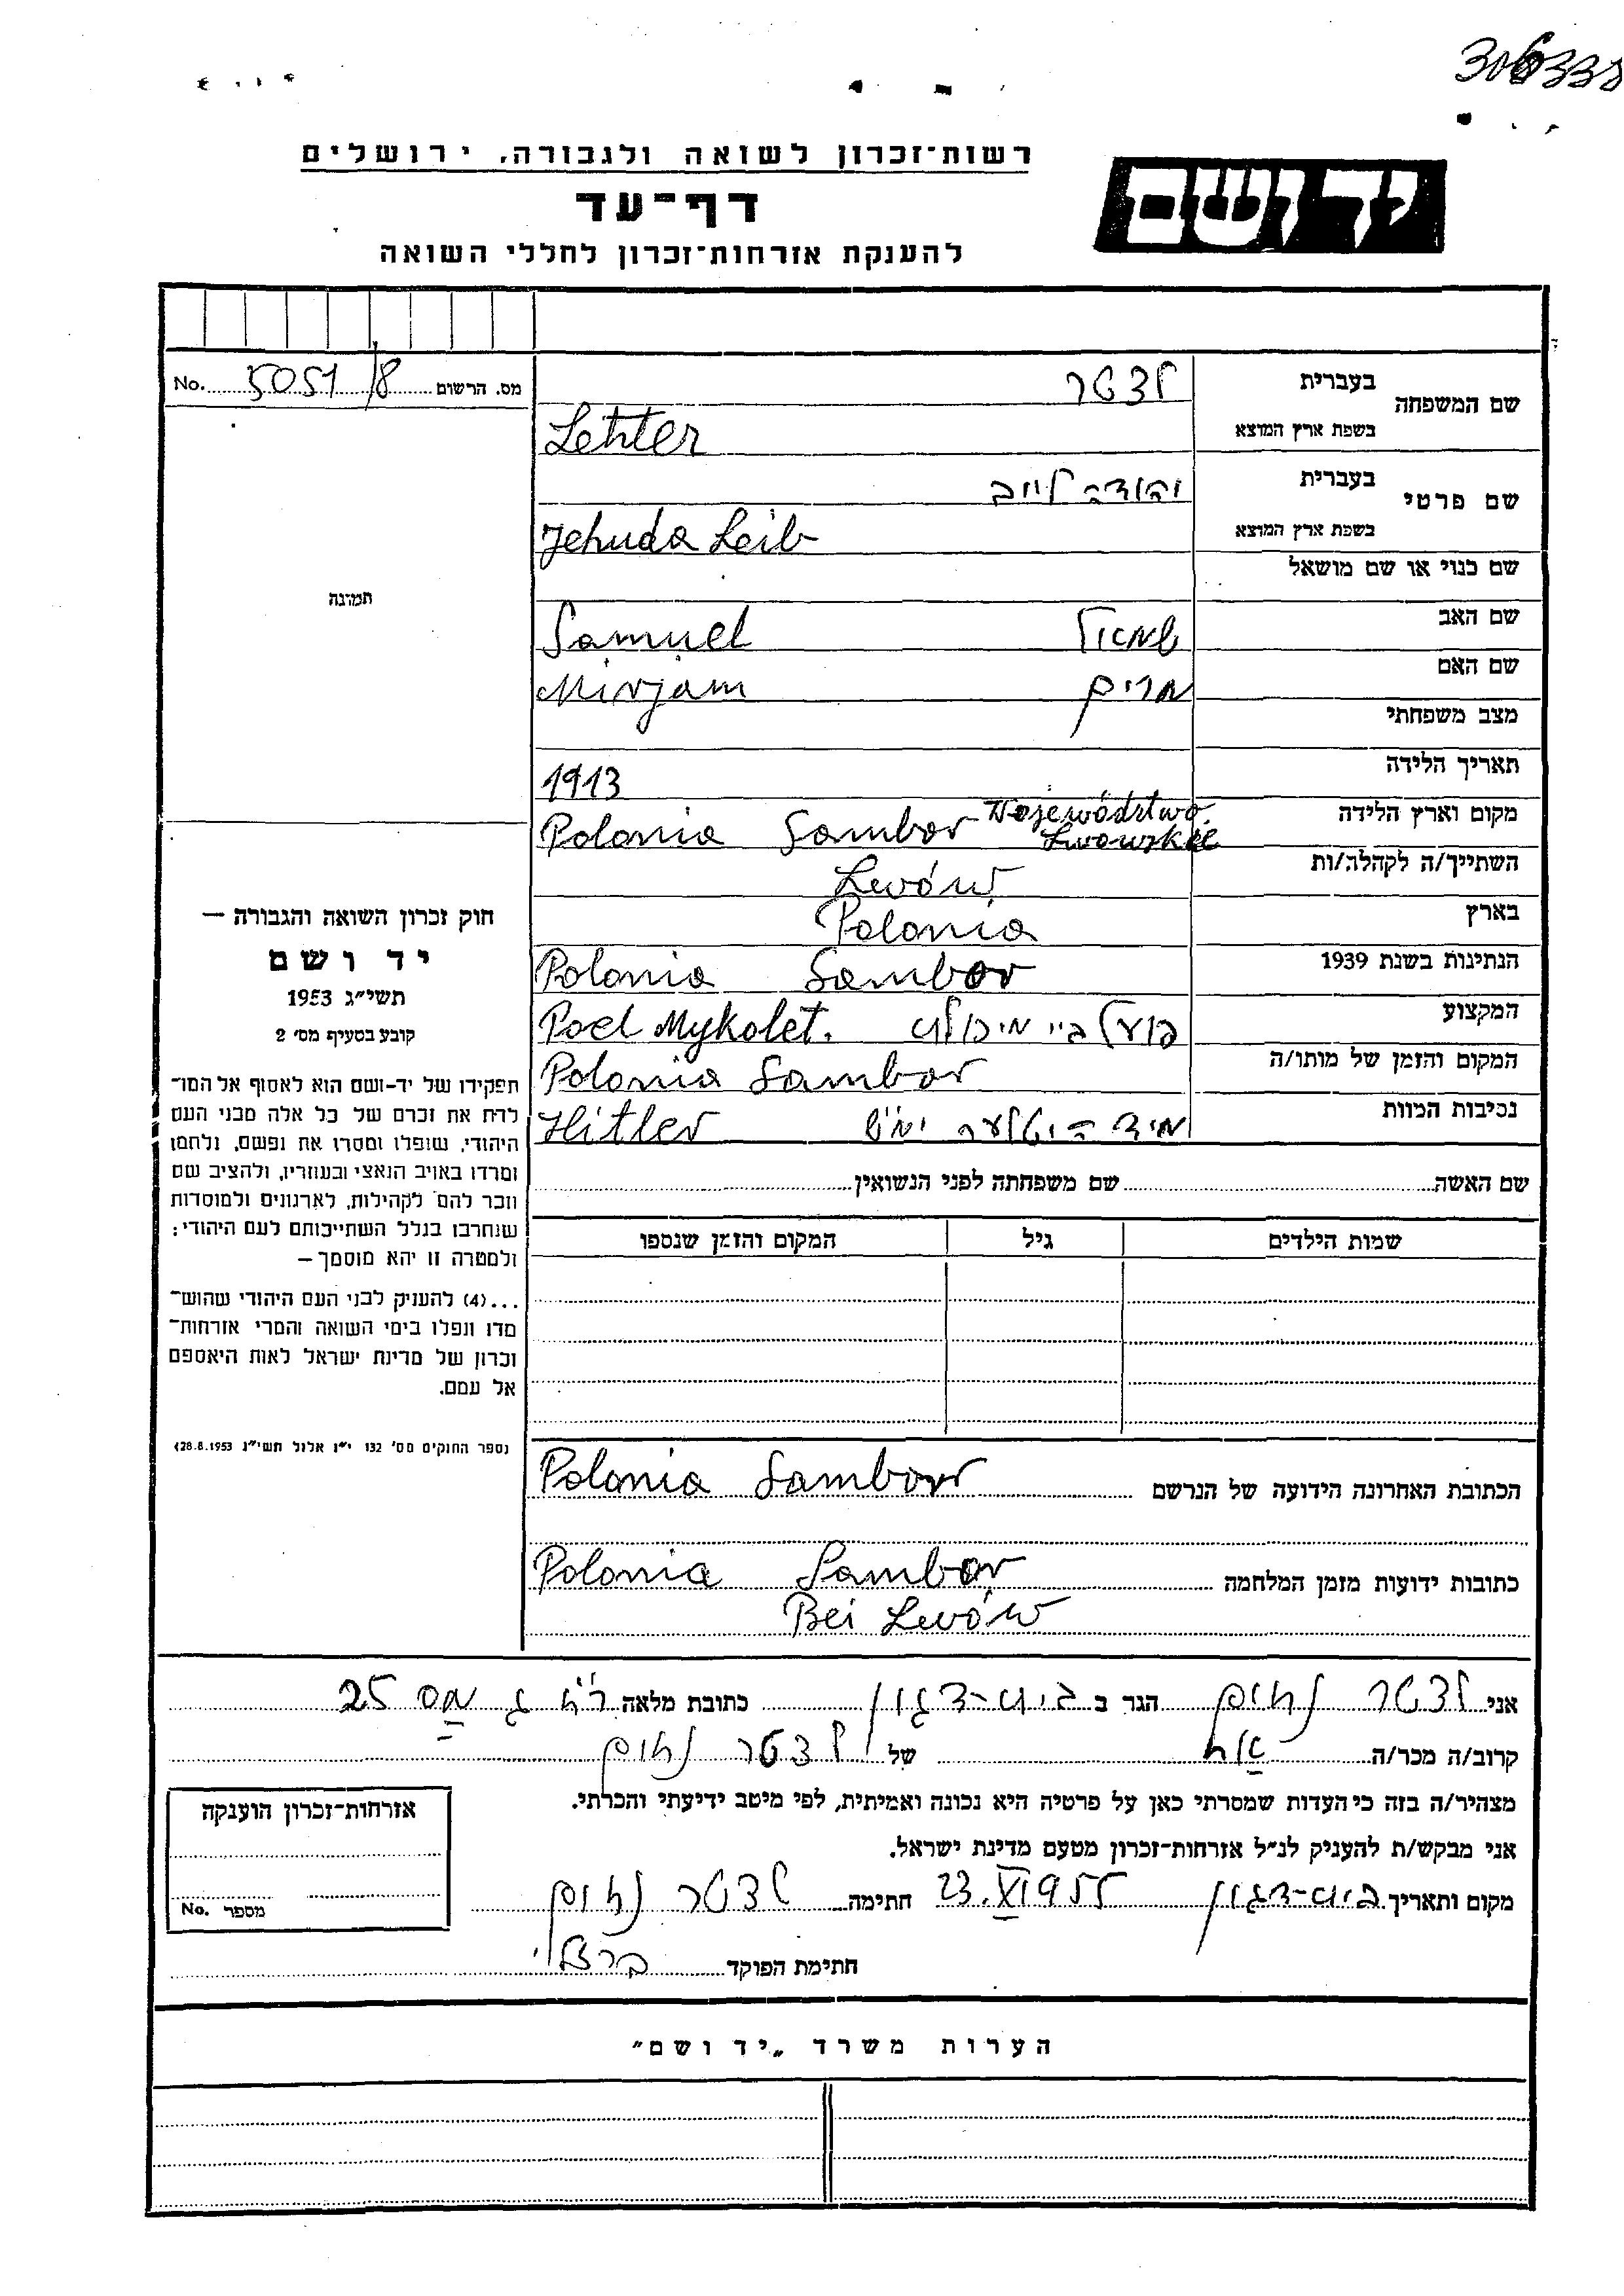 306338
רשות־זכרון לשואה ולגבורה, ירושלים
יד ושם
דף־עד
להענקת אזרחות־זכרון לחללי השואה
מס. הרשום 5051/8 No.
שם המשפחה
בעברית לצטר
בשפת ארץ המוצא Letzter
שם פרטי
בעברית יהודה לייב
בשפת ארץ המוצא Jehuda Leib
שם כנוי או שם מושאל
שם האב שמואל Samuel
שם האם מרים Mirjam
מצב משפחתי
תאריך הלידה 1913
מקום וארץ הלידה Polonia Sambor Wojewódstwo Lwowskie
השתייך/ה לקהלה/ות Lwów
בארץ Polonia
הנתינות בשנת 1939 Polonia Sambor
המקצוע Poel Mykolet.
המקום והזמן של מותו/ה Polonia Sambor
נסיבות המוות Hitler
שם האשה שם משפחתה לפני הנשואין
שמות הילדים גיל המקום והזמן שנספו
הכתובת האחרונה הידועה של הנרשם Polonia Sambor
כתובות ידועות מזמן המלחמה Polonia Sambor
Bei Lwów
תמונה
חוק זכרון השואה והגבורה —
יד ושם
תשי״ג 1953
קובע בסעיף מס׳ 2
תפקידו של יד-ושם הוא לאסוף אל המו־
לדת את זכרם של כל אלה מבני העם
היהודי, שנפלו ומסרו את נפשם, נלחמו
ומרדו באויב הנאצי ובעוזריו, ולהציב שם
וזכר להם לקהילות, לארגונים ולמוסדות
שנחרבו בגלל השתייכותם לעם היהודי;
ולמטרה זו יהא מוסמך —
...(4) להעניק לבני העם היהודי שהוש־
מדו ונפלו בימי השואה והמרי אזרחות־
זכרון של מדינת ישראל לאות היאספם
אל עמם.
(ספר החוקים מס׳ 132 י״ז אלול תשי״ג 28.8.1953)
אני לצטר נחום הגר ב בית-דגון כתובת מלאה ג מס 25
קרוב/ה מכר/ה אח של לצטר נחום
מצהיר/ה בזה כי העדות שמסרתי כאן על פרטיה היא נכונה ואמיתית, לפי מיטב ידיעתי והכרתי.
אני מבקש/ת להעניק לנ״ל אזרחות־זכרון מטעם מדינת ישראל.
מקום ותאריך בית-דגון 23.XI 1955 חתימה לצטר נחום
חתימת הפוקד ברצלי
אזרחות־זכרון הוענקה
מספר No.
הערות משרד „יד ושם״